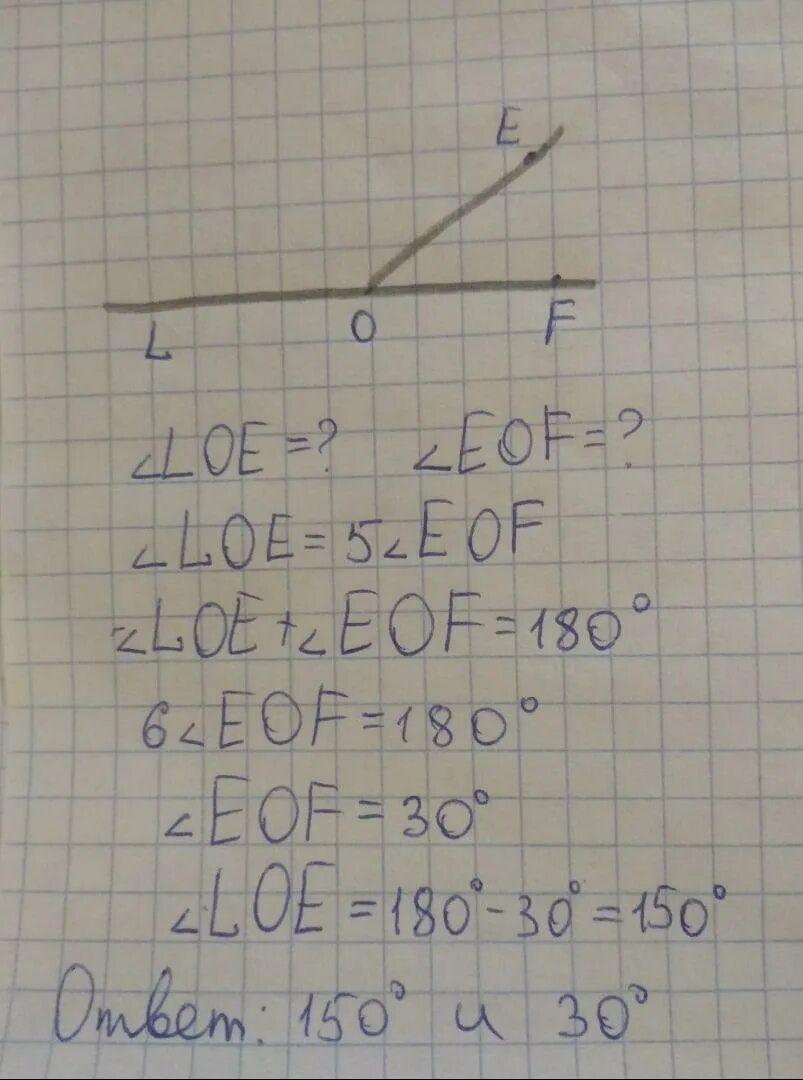 E
L O F
∠LOE = ? ∠EOF = ?
∠LOE = 5∠EOF
∠LOE + ∠EOF = 180°
6∠EOF = 180°
∠EOF = 30°
∠LOE = 180° - 30° = 150°
Ответ: 150° и 30°